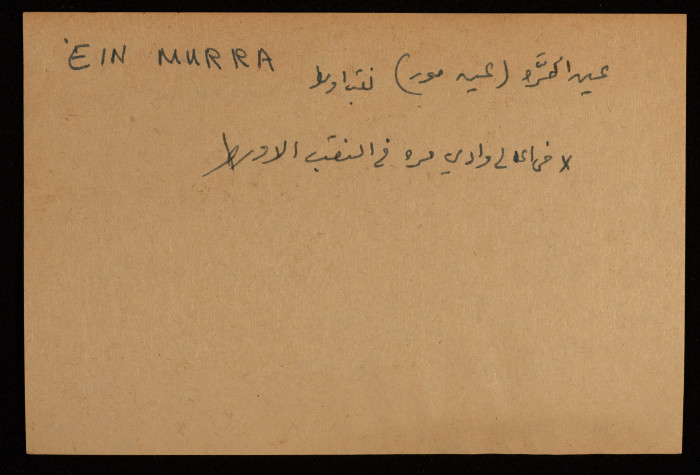 'EIN MURRA
عين المُرَّه (عين مور) نقب اوسط
x في اعالي وادي مره في النقب الاوسط